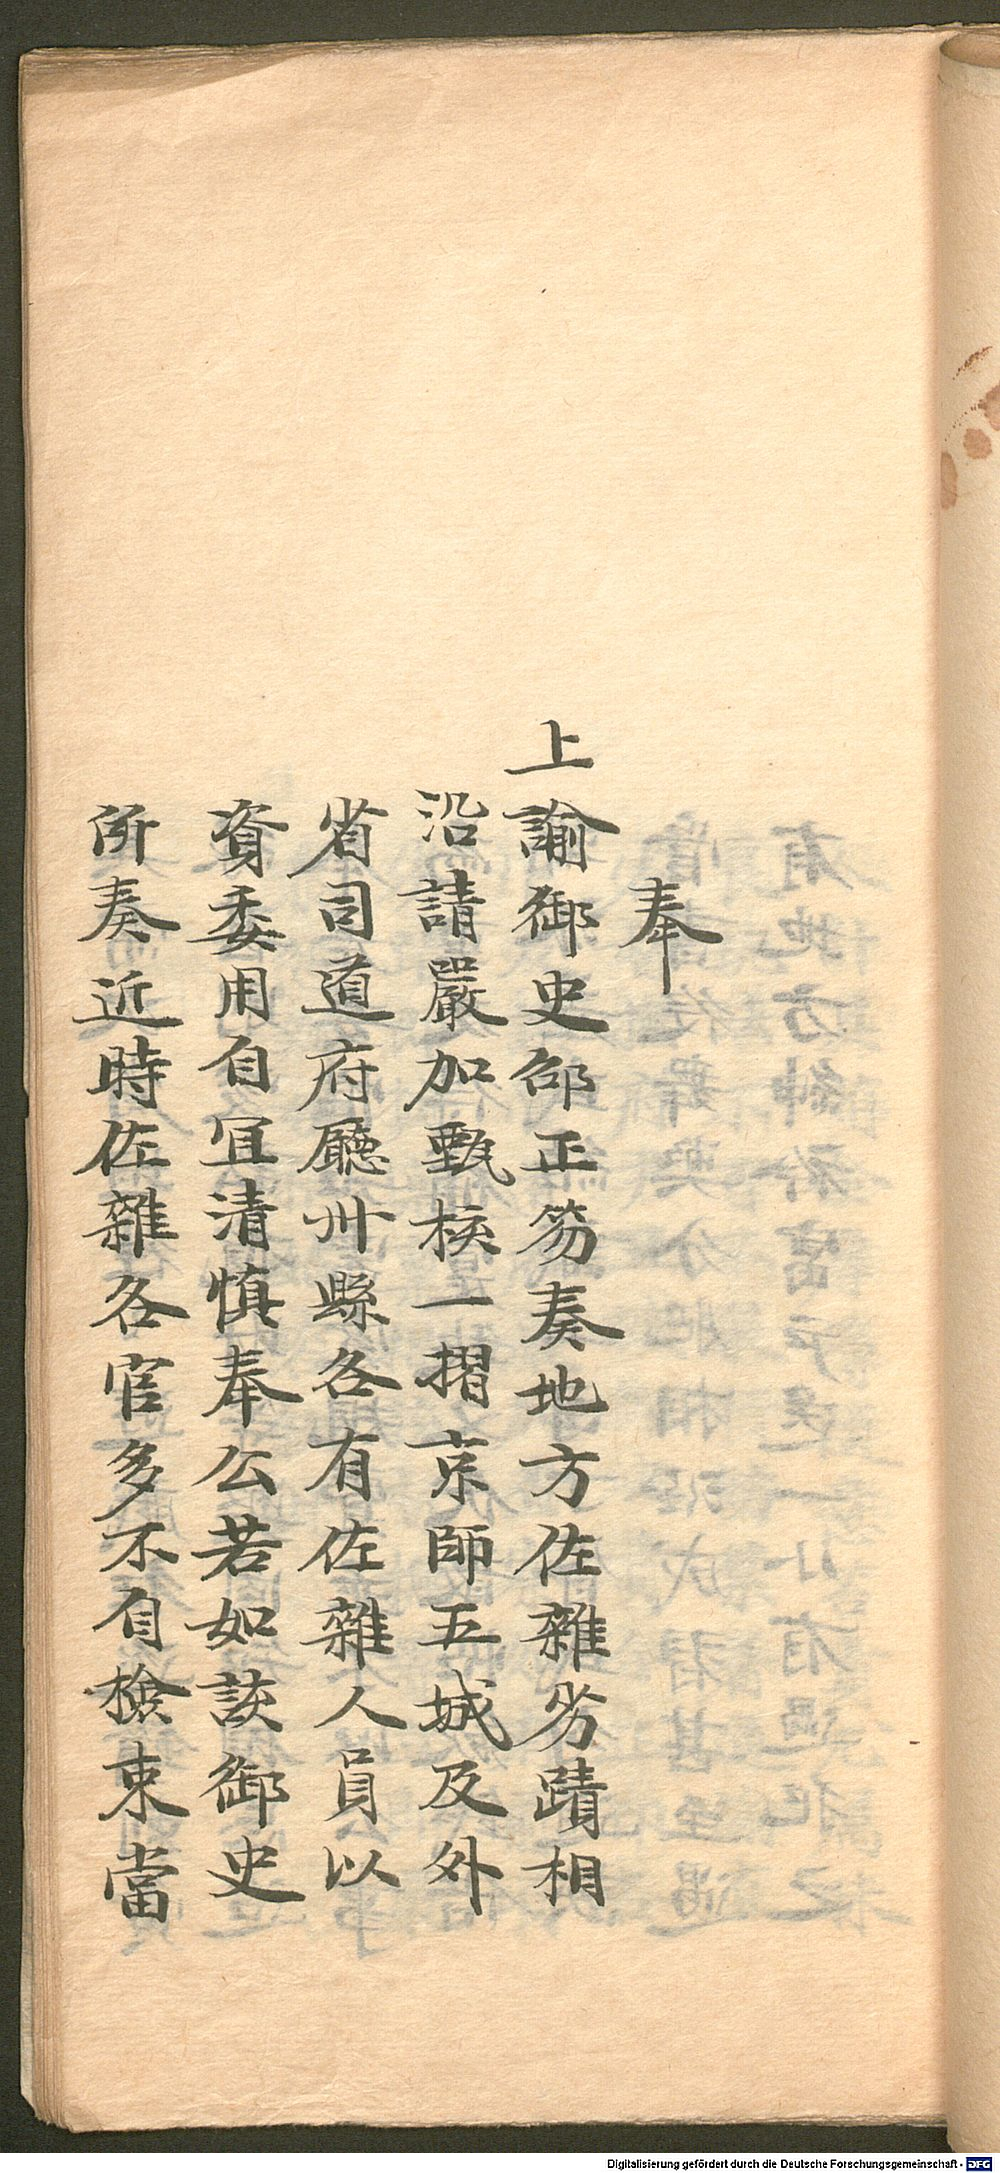 奉
上諭御史邵正笏奏地方佐雜劣蹟相
沿請嚴加甄核一摺京師五城及外
省司道府廳州縣各有佐雜人員以
資委用自宜清慎奉公若如該御史
所奏近時佐雜各官多不自檢束當
Digitalisierung gefördert durch die Deutsche Forschungsgemeinschaft - DFG